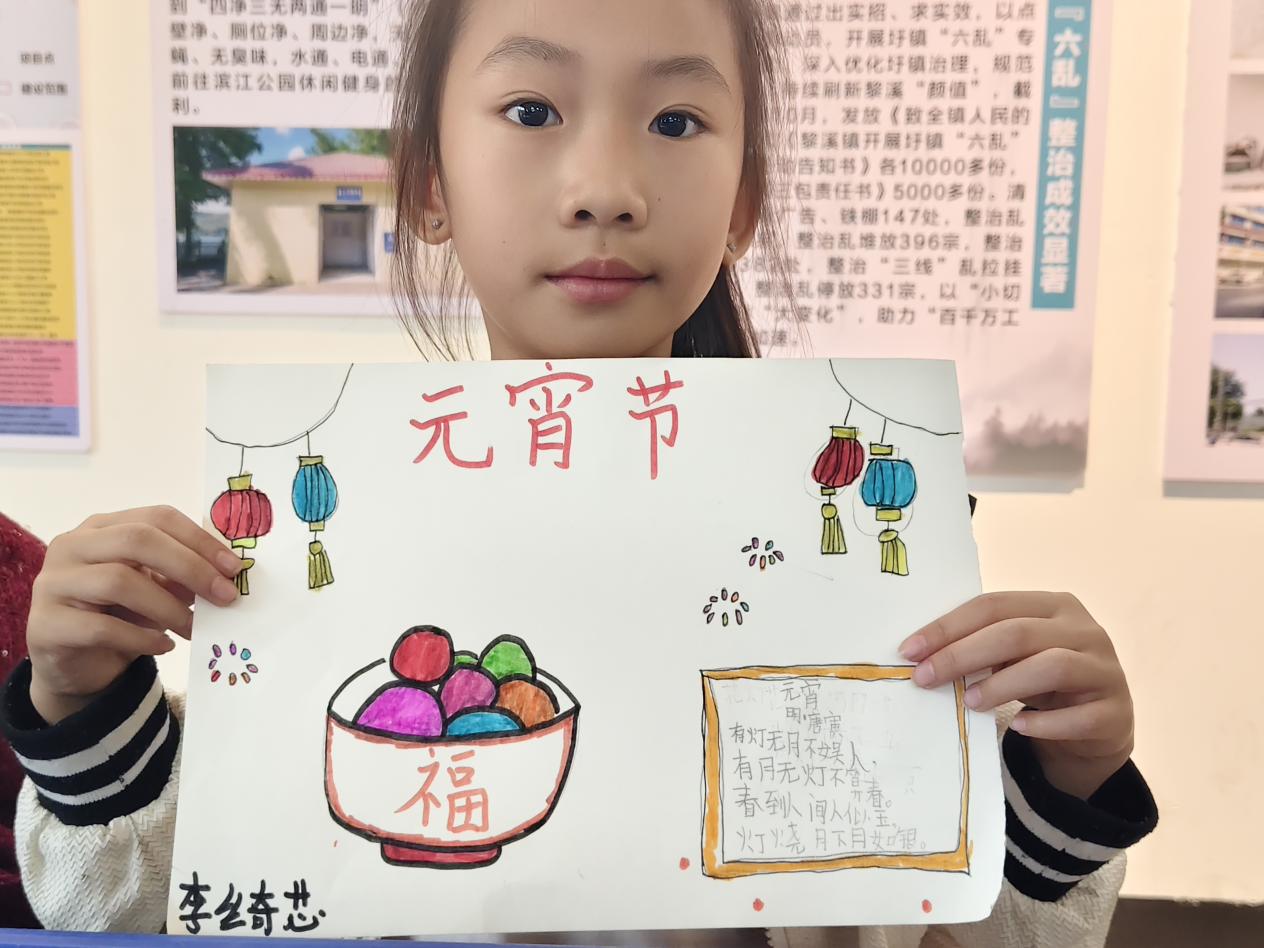 到“四净三无两通一明”
壁净、厕位净、周边净，无
蝇、无臭味，水通、电通，
前往滨江公园休闲健身的
利。
建设范围
通过出实招、求实效，以点
员，开展圩镇“六乱”专
深入优化圩镇治理，规范
持续刷新黎溪“颜值”，截
0月，发放《致全镇人民的
《黎溪镇开展圩镇“六乱”
告知书》各10000多份，
三包责任书》5000多份。清
广告、铁棚147处，整治乱
整治乱堆放396宗，整治
处，整治“三线”乱拉挂
整治乱停放331宗，以“小切
“大变化”，助力“百千万工
加速。
『六乱』整治成效显著
元宵节
福
元宵
明唐寅
有灯无月不娱人，
有月无灯不算春。
春到人间人似玉，
灯烧月下月如银。
李丝奇芯